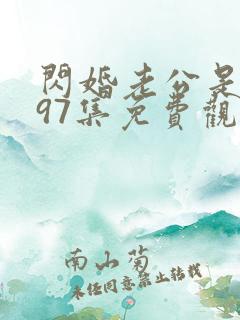 閃婚老公是
97集免費觀
南山菊
未經同意禁止轉載